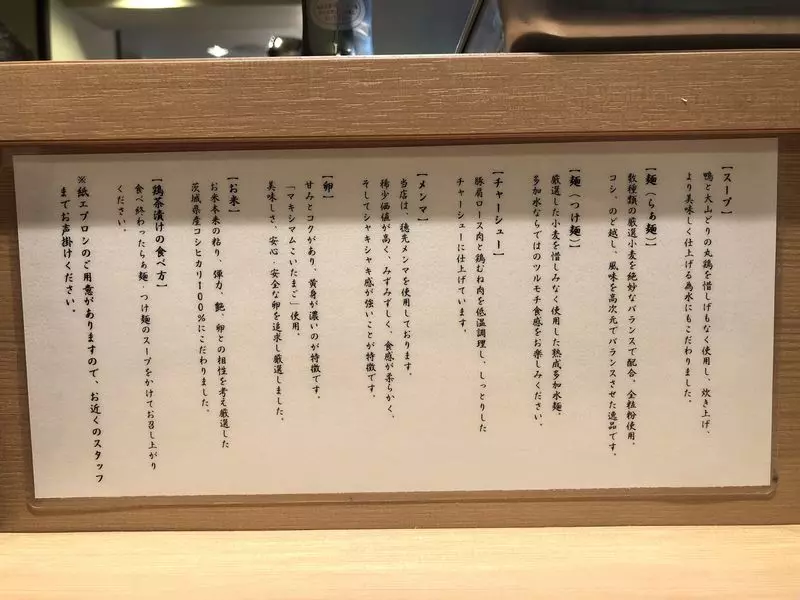 【スープ】
鴨と大山どりの丸鶏を惜しげもなく使用し、炊き上げ、
より美味しく仕上げる為水にもこだわりました。
【麺（らぁ麺）】
数種類の厳選小麦を絶妙なバランスで配合。全粒粉使用。
コシ、のど越し、風味を高次元でバランスさせた逸品です。
【麺（つけ麺）】
厳選した小麦を惜しみなく使用した熟成多加水麺。
多加水ならではのツルモチ食感をお楽しみください。
【チャーシュー】
豚肩ロース肉と鶏むね肉を低温調理し、しっとりした
チャーシューに仕上げています。
【メンマ】
当店は、穂先メンマを使用しております。
稀少価値が高く、みずみずしく、食感が柔らかく、
そしてシャキシャキ感が強いことが特徴です。
【卵】
甘みとコクがあり、黄身が濃いのが特徴です。
「マキシマムこいたまご」使用。
美味しさ、安心・安全な卵を追求し厳選しました。
【お米】
お米本来の粘り、弾力、艶、卵との相性を考え厳選した
茨城県産コシヒカリ100％にこだわりました。
【鶏茶漬けの食べ方】
食べ終わったらぁ麺、つけ麺のスープをかけてお召し上がり
ください。
※紙エプロンのご用意がありますので、お近くのスタッフ
までお声掛けください。